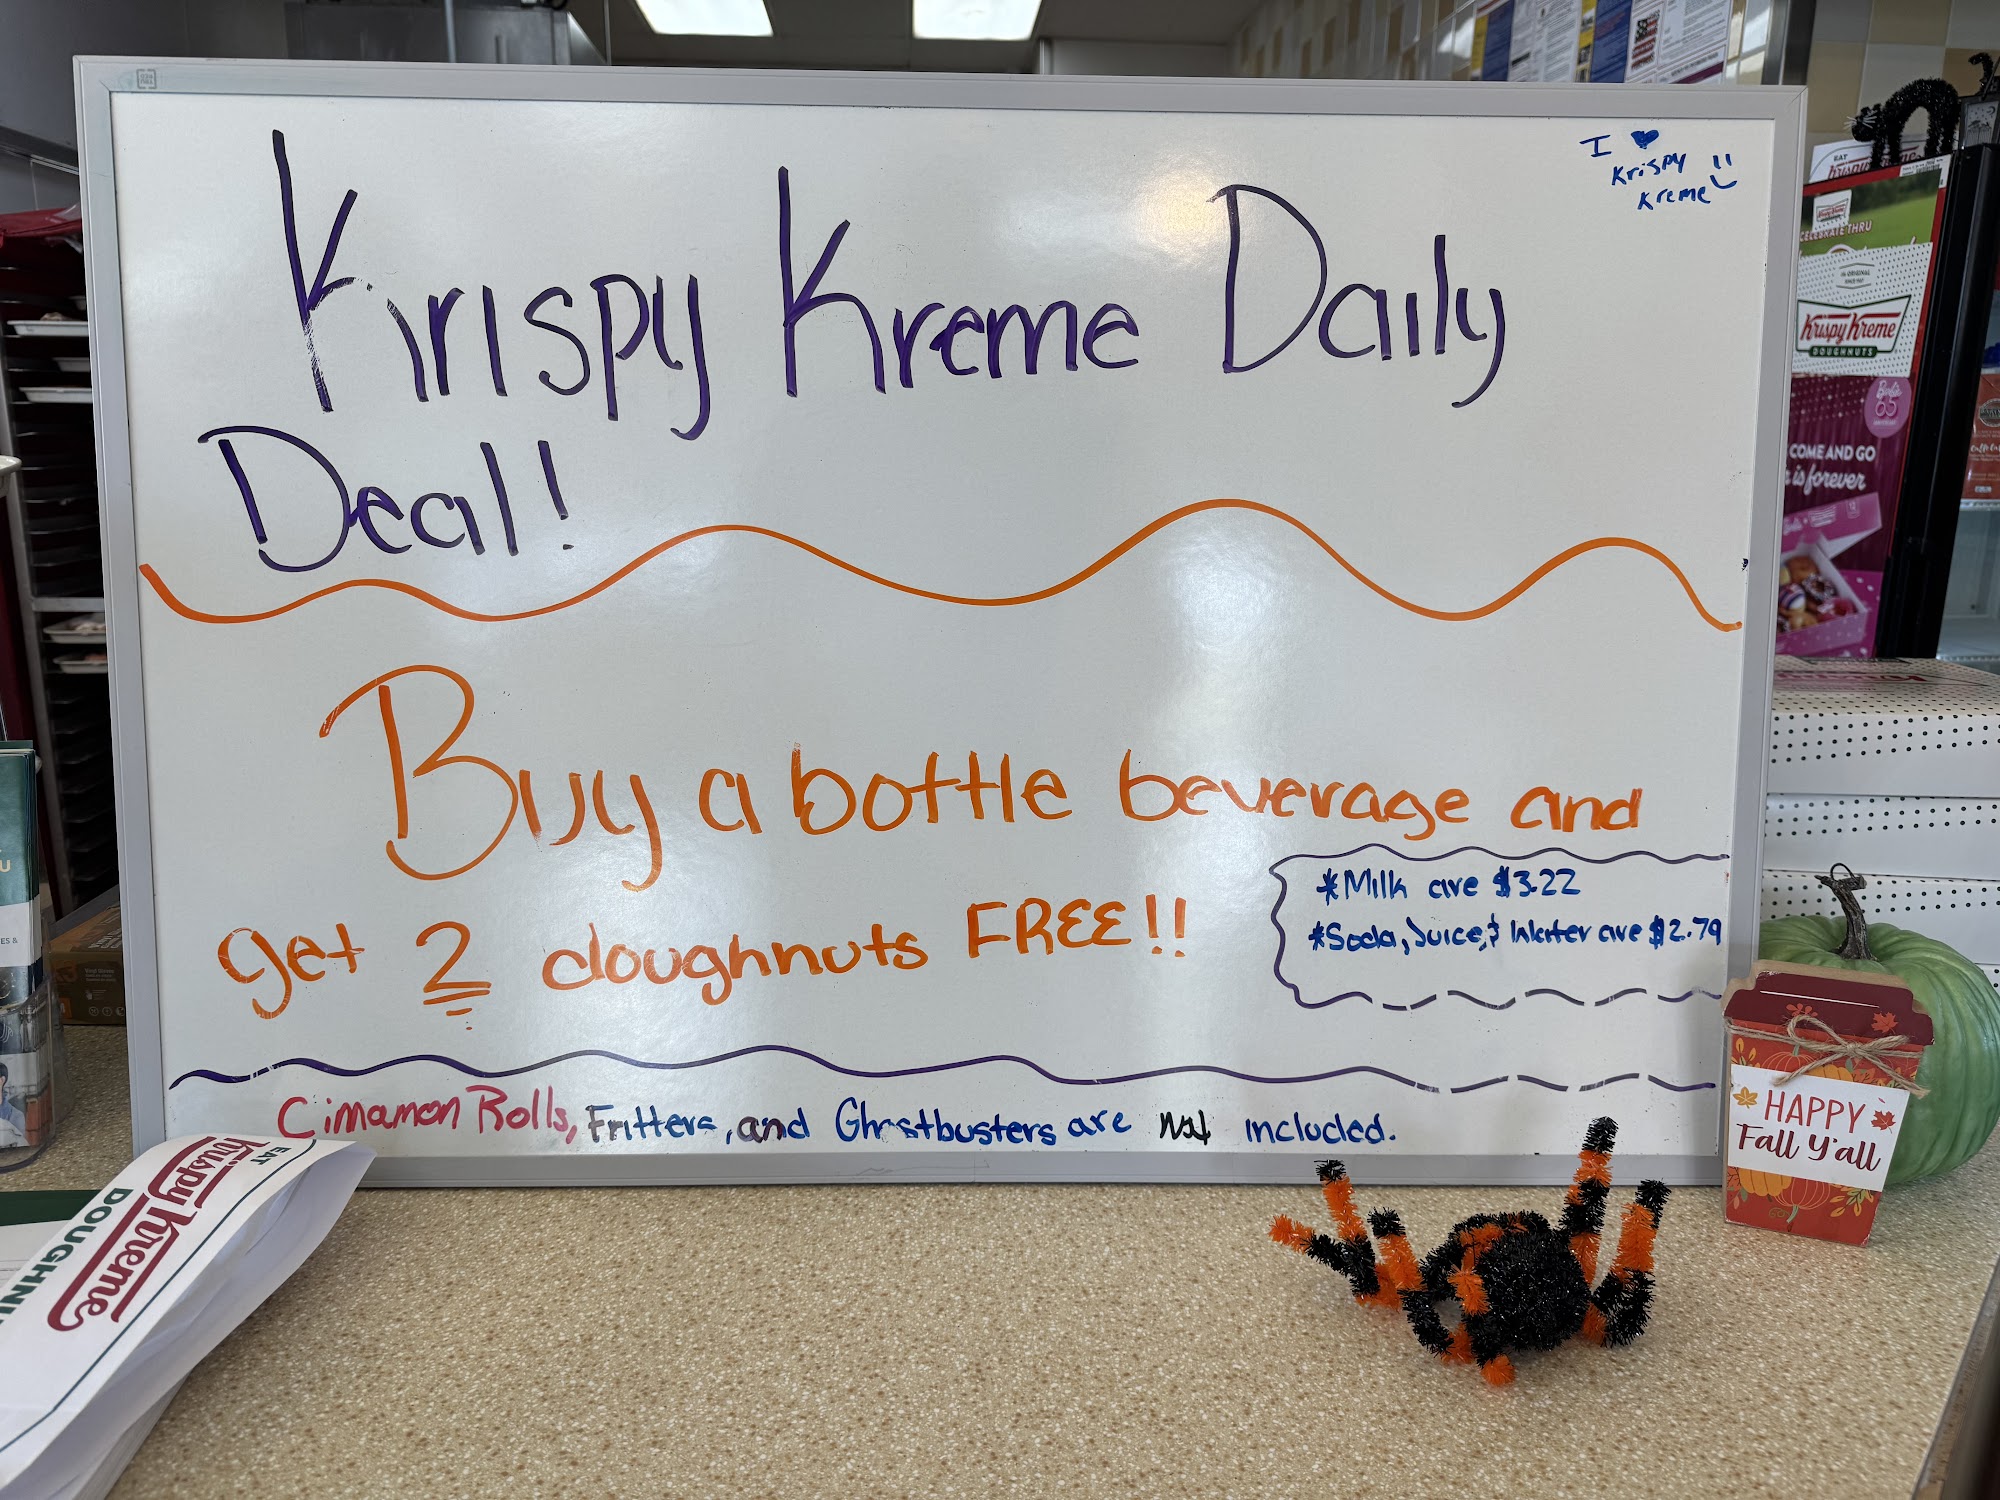 Krispy Kreme Daily
Deal!
I ♥
Krispy
Kreme
Buy a bottle beverage and
get 2 doughnuts FREE!!
*Milk are $3.22
*Soda, Juice, & Water are $2.79
Cimamon Rolls, Fritters, and Ghostbusters are not included.
EAT
Krispy Kreme
CELEBRATE THRU
ORIGINAL
Krispy Kreme
DOUGHNUTS
Barbie
65
COME AND GO
is forever
HAPPY
Fall Y'all
EAT
Krispy Kreme